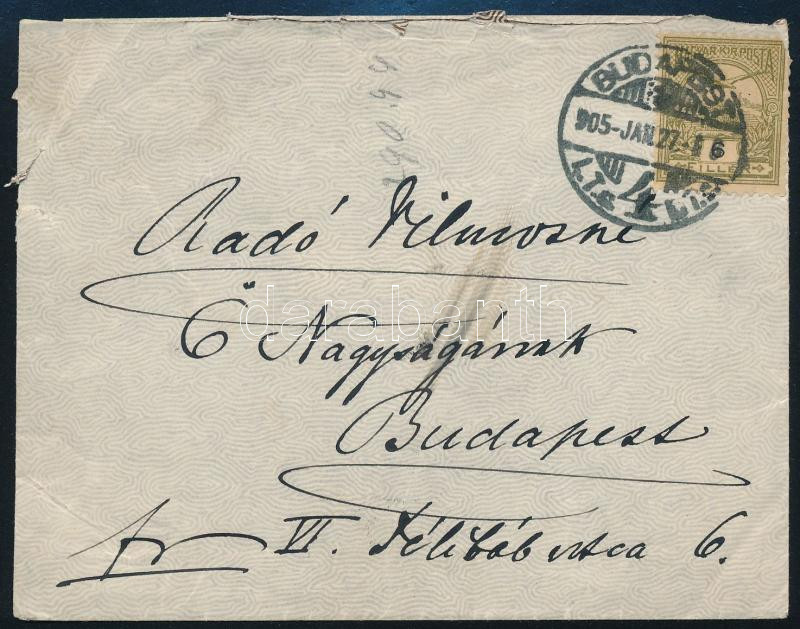 MAGYAR KIR. POSTA
FILLÉR
BUDAPEST
905-JAN.27
4
Radó Vilmosné
Ő Nagyságának
darabanth
Budapest
fr VI. Délibáb utca 6.